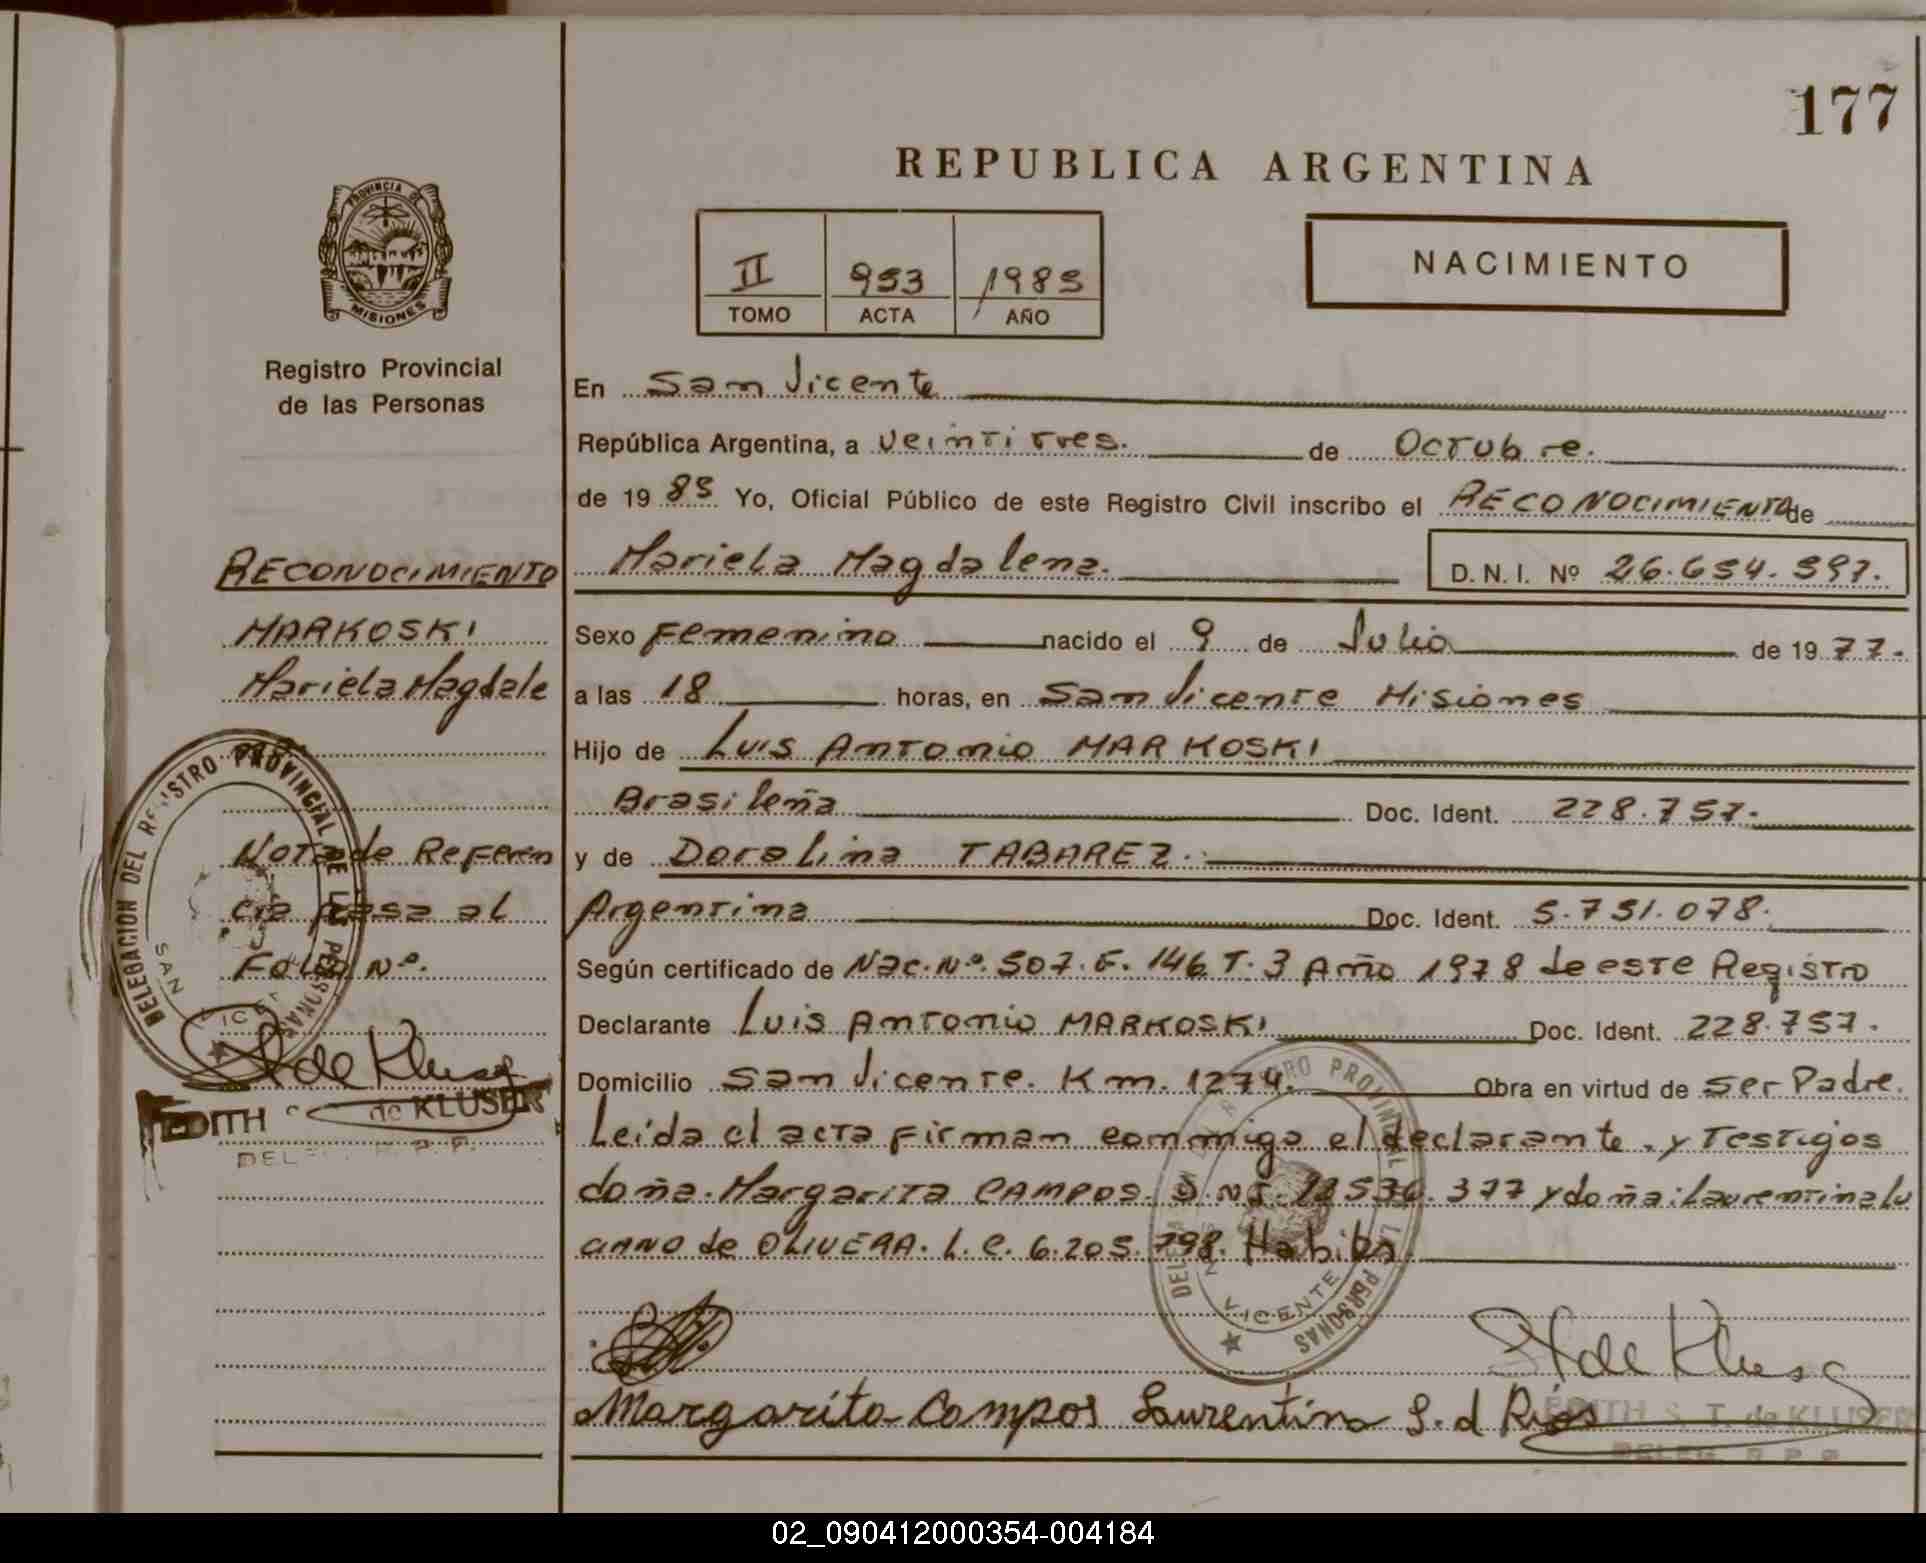 177
REPUBLICA ARGENTINA
PROVINCIA DE
MISIONES
II 953 1985
TOMO ACTA AÑO
NACIMIENTO
Registro Provincial
de las Personas
En San Vicente
República Argentina, a veintitres. de Octubre.
de 19 85 Yo, Oficial Público de este Registro Civil inscribo el RECONOCIMIENTO de
Mariela Magdalena. D. N. I. Nº 26.654.597.
Sexo Femenino nacido el 9 de Julio de 19 77.
a las 18 horas, en San Vicente Misiones
Hijo de Luis Antonio MARKOSKI
Brasileña Doc. Ident. 228.757.
y de Doralina TABAREZ.
Argentina Doc. Ident. 5.751.078.
Según certificado de Nac. Nº. 507. F. 146 T. 3 Año 1978 de este Registro
Declarante Luis Antonio MARKOSKI Doc. Ident. 228.757.
Domicilio San Vicente. Km. 1274. Obra en virtud de ser Padre.
Leida el acta firman conmigo el declarante. y Testigos
doña. Margarita CAMPOS. 377 y doña: Laurentina Lu
ciano de OLIVERA. L. C. 6.205.798. Habiles
Margarita Campos Laurentina L. d Rios
de Kluser
EDITH S. T. de KLUSER
DELEG. R. P. P.
RECONOCIMIENTO
MARKOSKI
Mariela Magdale
Nota de Referen
cia pasa al
Folio Nº.
de Kluser
EDITH de KLUSER
DEL R. P. P.
DELEGACION DEL REGISTRO PROVINCIAL DE LAS PERSONAS
SAN VICENTE
DELEGACION DEL REGISTRO PROVINCIAL DE LAS PERSONAS
VICENTE
02_090412000354-004184